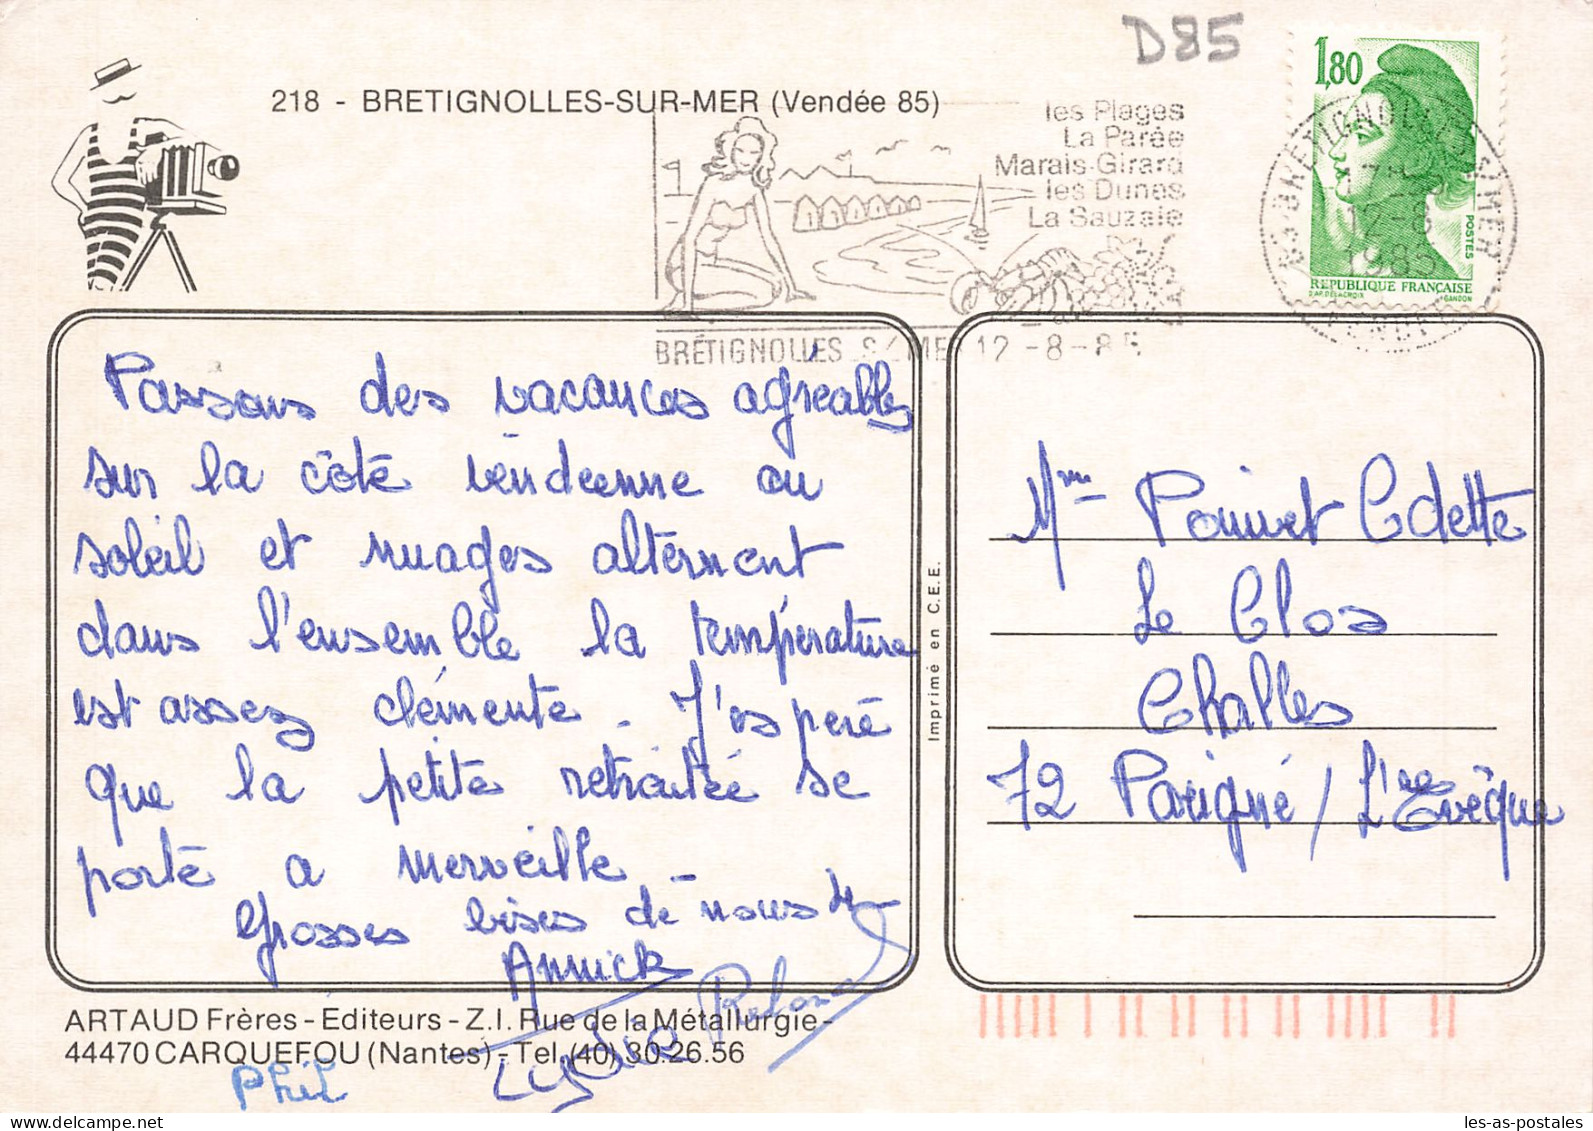 D85
218 - BRETIGNOLLES-SUR-MER (Vendée 85)
les Plages
La Parée
Marais-Girard
les Dunes
La Sauzaie
BRÉTIGNOLLES S/MER 12-8-85
1,80
POSTES
REPUBLIQUE FRANÇAISE
D'AP. DELACROIX GANDON
12-8
1985
Passons des vacances agréables
sur la côte vendeenne ou
soleil et nuages alternent
dans l'ensemble la température
est assez clémente. J'esperé
que la petite retraitée se
porte a merveille -
Grosses bises de nous 4
Annick
Roland
Lydie
Phil
Imprimé en C.E.E.
Mme Poinvet Odette
Le Clos
Challes
72 Parigné / L'Evêque
ARTAUD Frères - Editeurs - Z.I. Rue de la Métallurgie -
44470 CARQUEFOU (Nantes) - Tel. (40) 30.26.56
les-as-postales